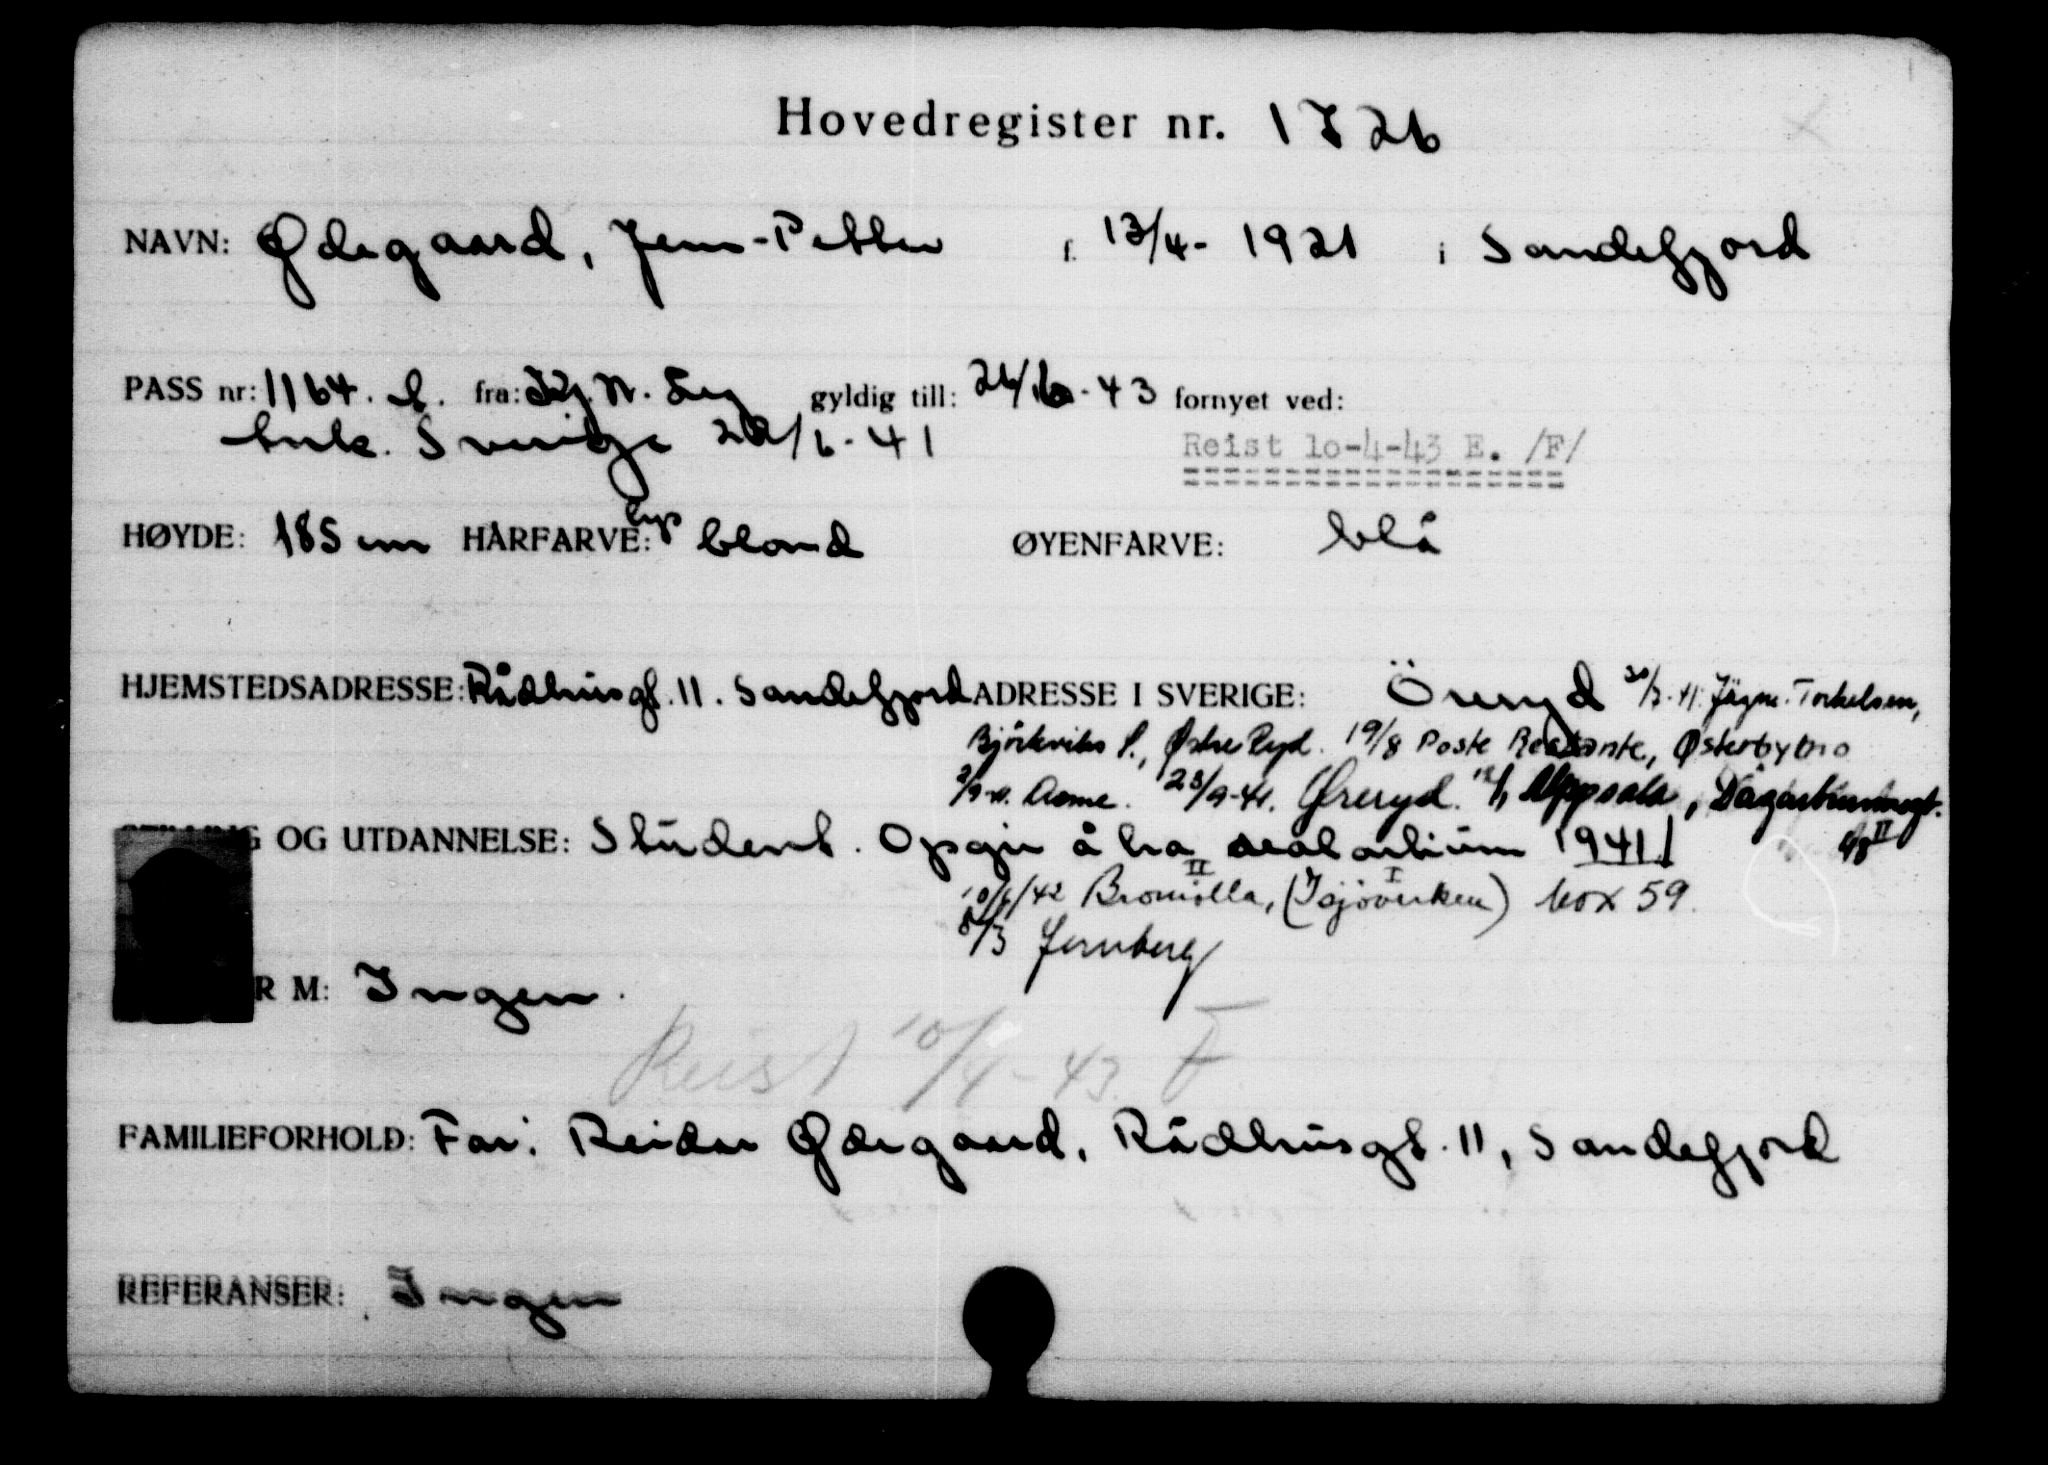 Hovedregister nr. 1726
NAVN: Ødegaard, Jens-Petter f. 13/4- 1921 i Sandefjord
PASS nr: 1164. fra: Kgl. N. Leg gyldig till: 26/6-43 fornyet ved:
Ank. Sverige 22/6-41 Reist 10-4-43 E. /F/
HØYDE: 185 cm HÅRFARVE: lys blond ØYENFARVE: blå
HJEMSTEDSADRESSE: Rådhusgt. 11. Sandefjord ADRESSE I SVERIGE: Öreryd 30/7-41. Torkelsen,
Björkviks P., Østre Ryd. 19/8 Poste Restante, Østerbybro
2/9-41. 23/9-41. Øreryd. Uppsala, Dagarbrunnsgt.
48 II
OG UTDANNELSE: Student. Opgir å ha realartium 1941
10/6/42 Bromölla, (Ifjöverken) box 59.
8/3 Jernberg
R M: Ingen.
Reist 10/4-43. F
FAMILIEFORHOLD: Far: Reidar Ødegaard, Rådhusgt. 11, Sandefjord
REFERANSER: Ingen